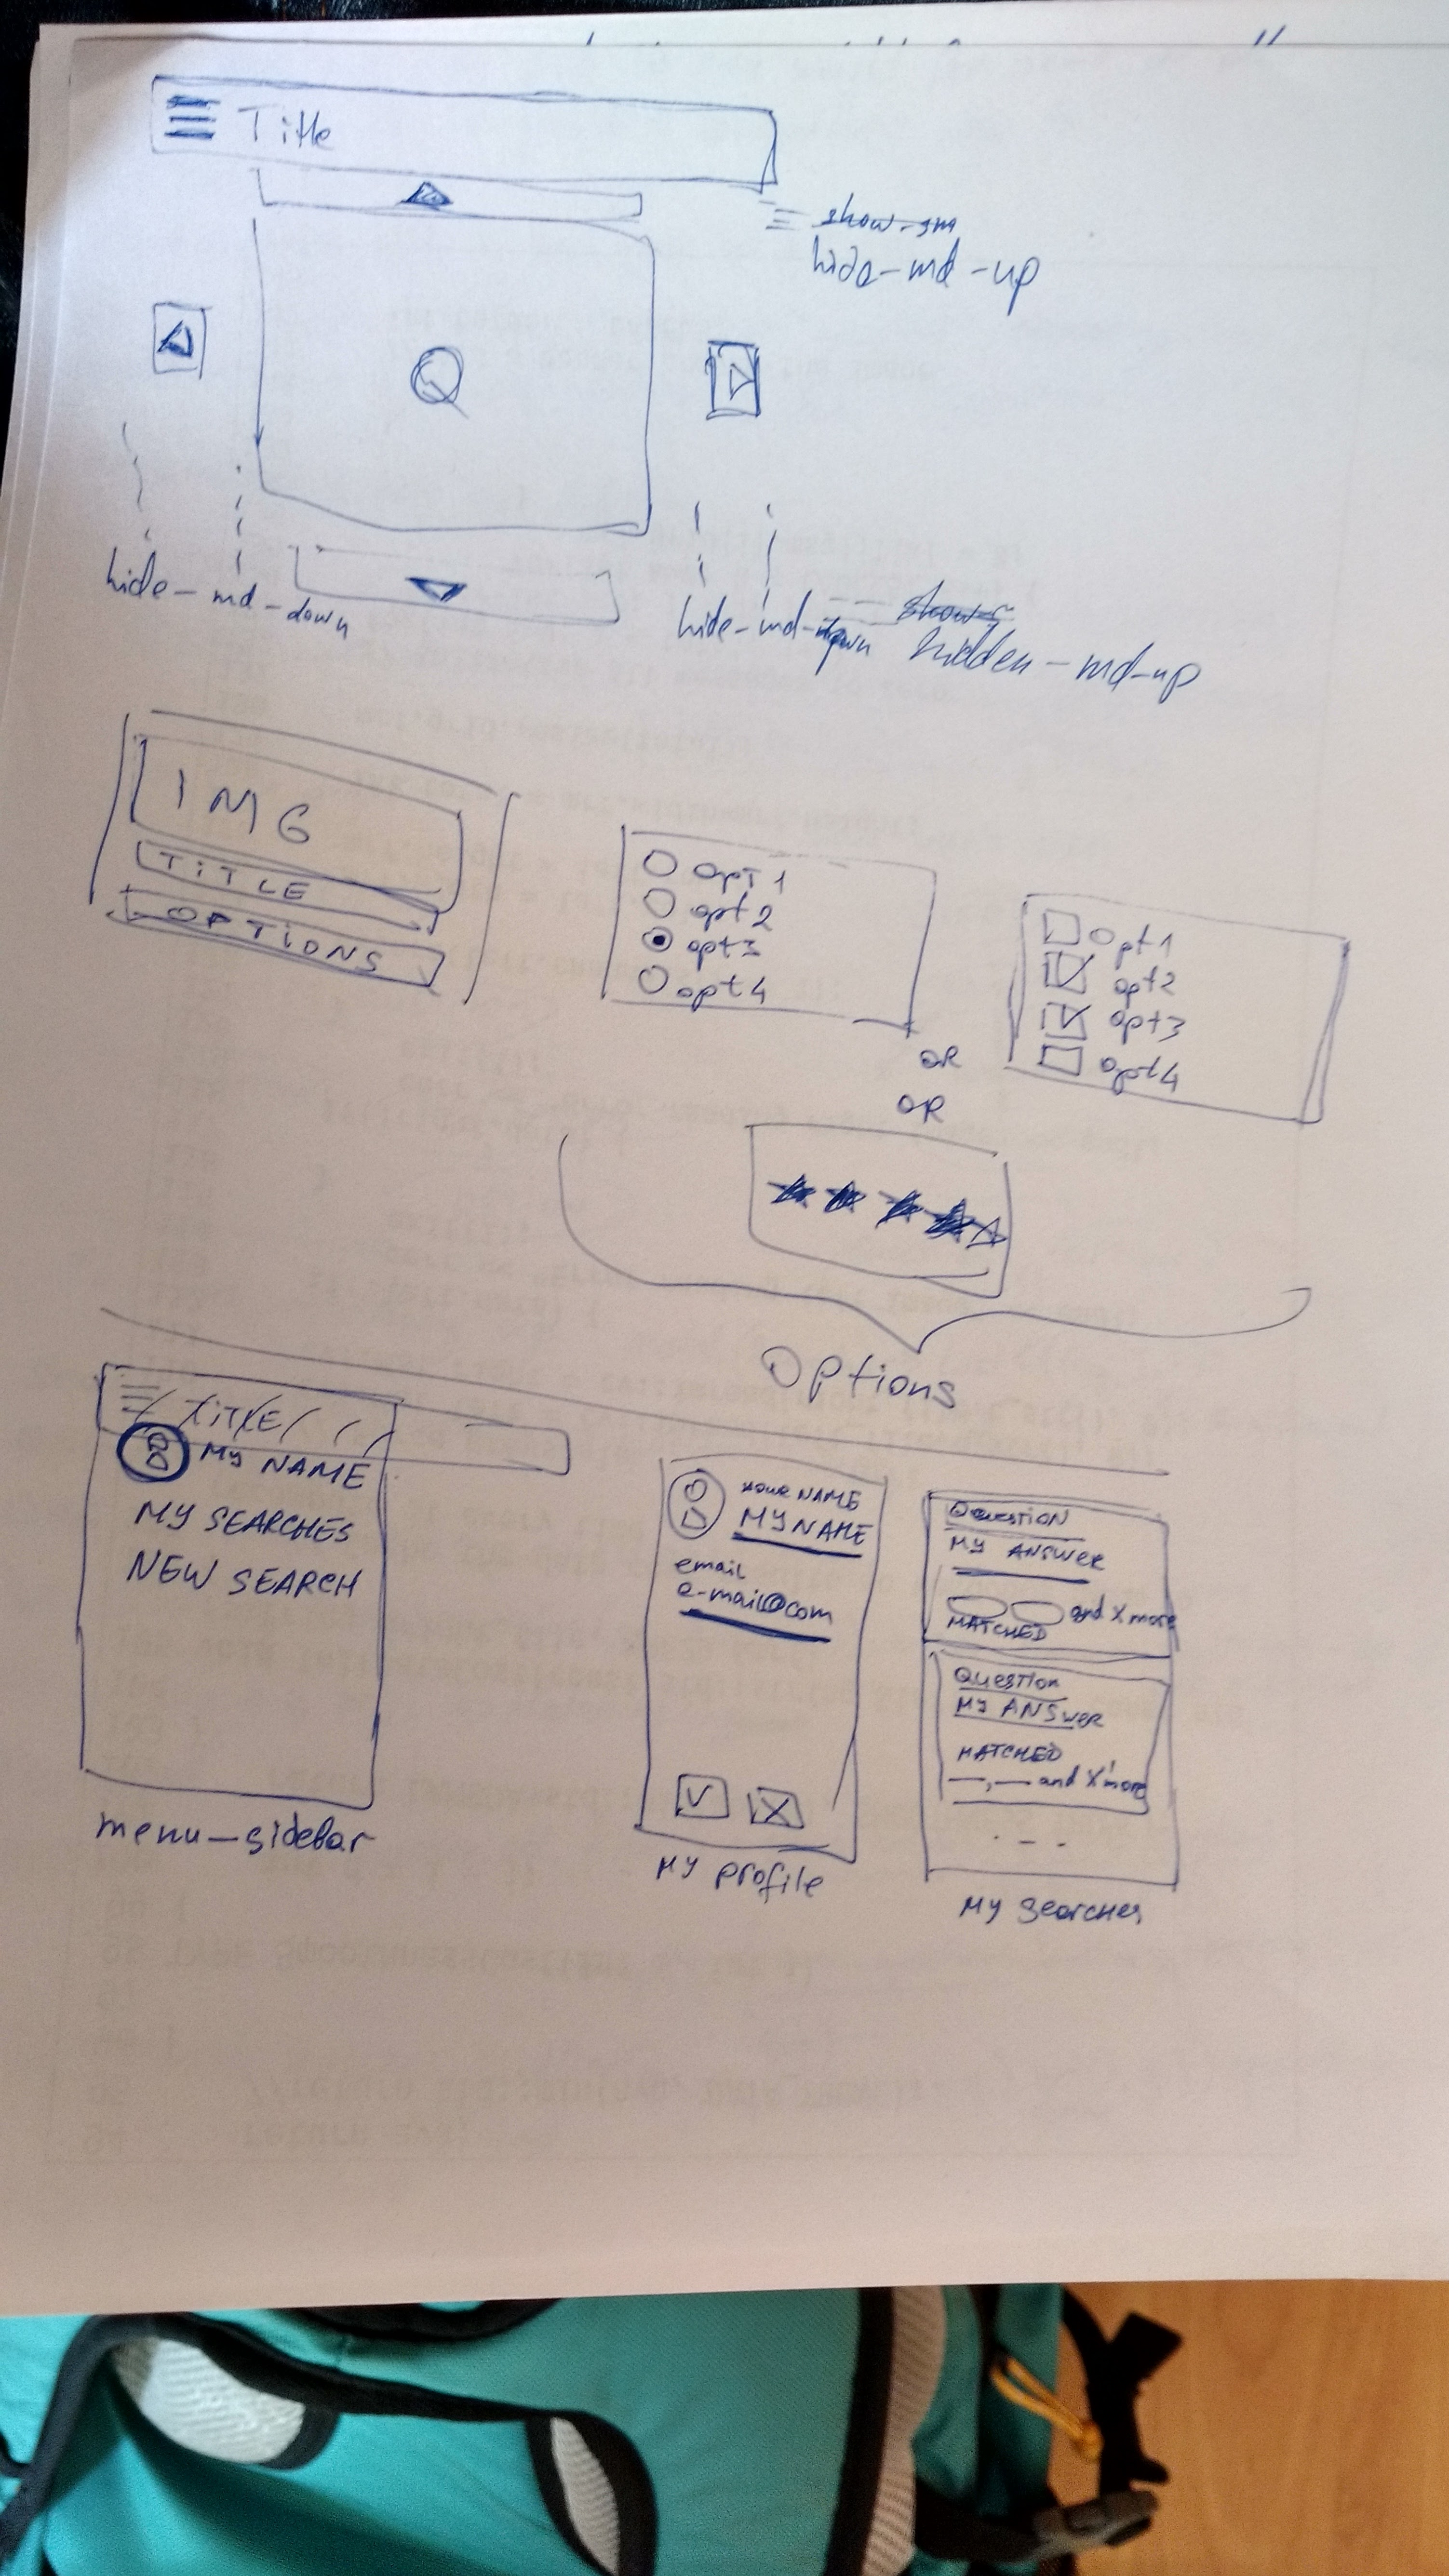 Title
show-sm
hide-md-up
Q
hide-md-down
hide-md-down
hidden-md-up
IMG
TITLE
OPTIONS
opt 1
opt 2
opt3
opt 4
opt1
opt2
opt3
opt4
OR
OR
Options
TITLE
MY NAME
MY SEARCHES
NEW SEARCH
menu-sidebar
YOUR NAME
MY NAME
email
e-mail@com
V X
MY profile
QUESTION
MY ANSWER
and X more
MATCHED
QUESTION
MY ANSWER
MATCHED
—, — and X more
. - .
MY searches